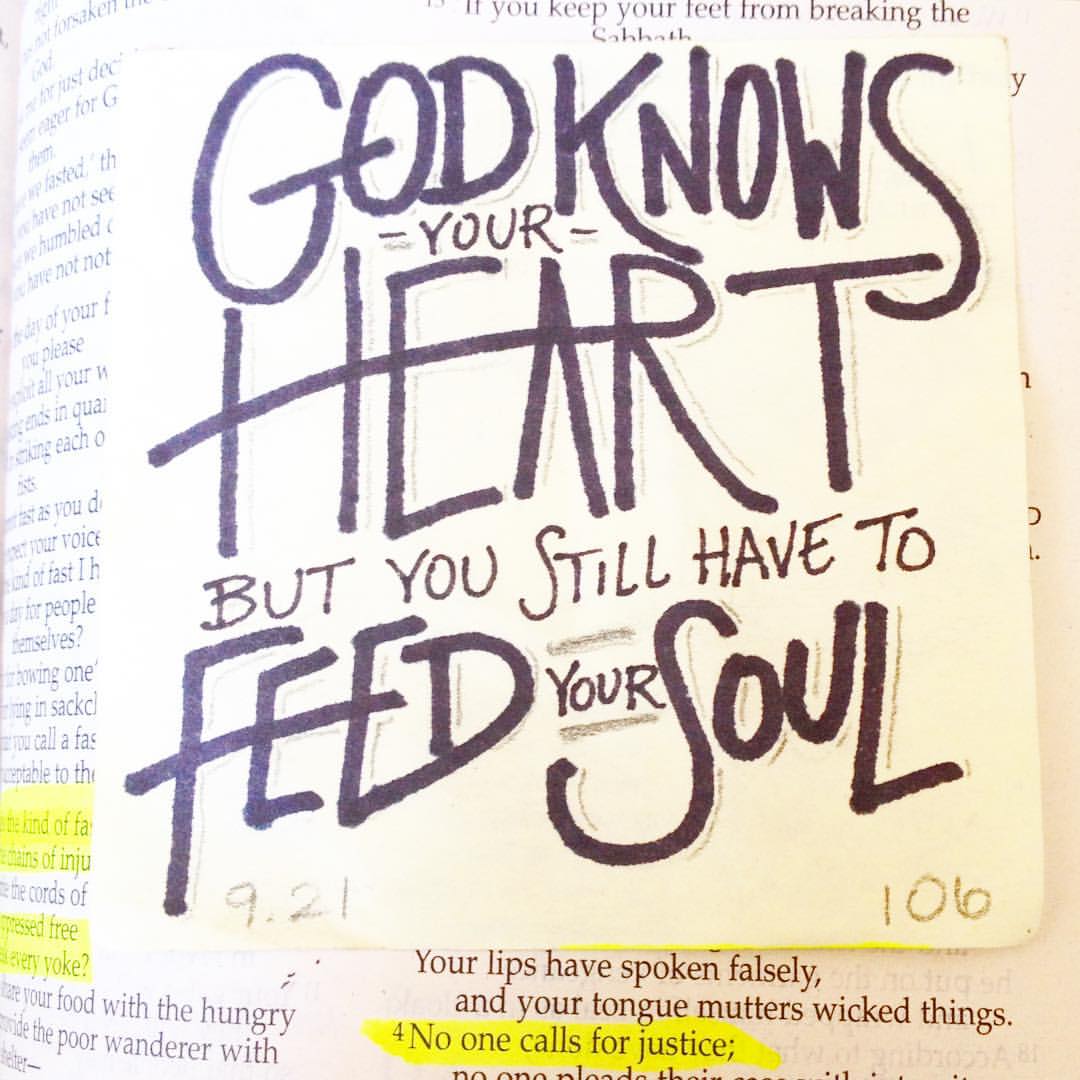 not forsaken the
God.
me for just deci
eager for G
them.
we fasted,' th
have not see
we humbled
have not not
day of your f
you please
all your w
ends in quar
striking each o
fists.
fast as you d
your voice
kind of fast I h
day for people
themselves?
bowing one'
lying in sackcl
you call a fas
acceptable to the
the kind of fa
chains of inju
the cords of
free
every yoke?
your food with the hungry
the poor wanderer with
shelter—
If you keep your feet from breaking the
Sabbath
GOD KNOWS
-YOUR-
HEART
BUT YOU STILL HAVE TO
FEED YOUR SOUL
9.21 106
Your lips have spoken falsely,
and your tongue mutters wicked things.
4 No one calls for justice;
no one pleads their case with